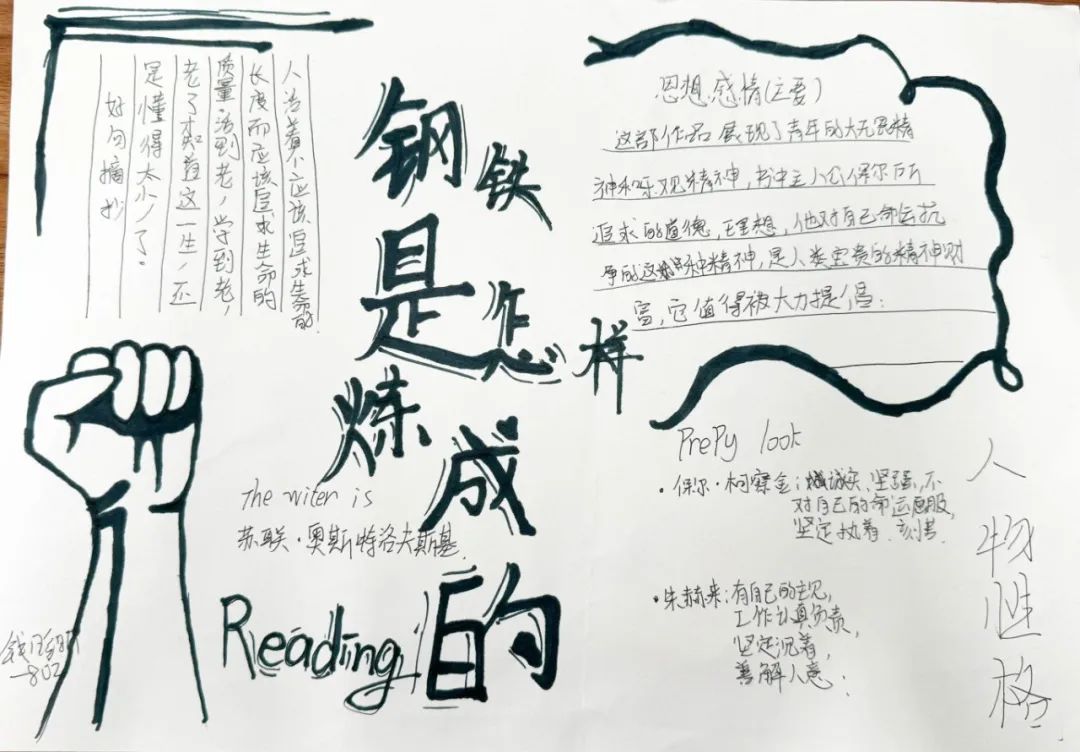 人活着不应该追求生命的
长度而应该追求生命的
质量,活到老,学到老,
老了才知道这一生,还
是懂得太少了。
好句摘抄
钢铁
是怎样
炼成
的
Reading
the writer is
苏联·奥斯特洛夫斯基.
思想感情(主要)
这部作品展现了青年的大无畏精
神和乐观精神,书中主人公保尔所
追求的道德,理想,他对自己命运抗
争的这种精神,是人类宝贵的精神财
富,它值得被大力提倡:
PrePy look
·保尔·柯察金:诚实、坚强,不
对自己的命运屈服,
坚定执着、刻苦.
·朱赫来:有自己的主见,
工作认真负责,
坚定沉着,
善解人意;
人物性格
802